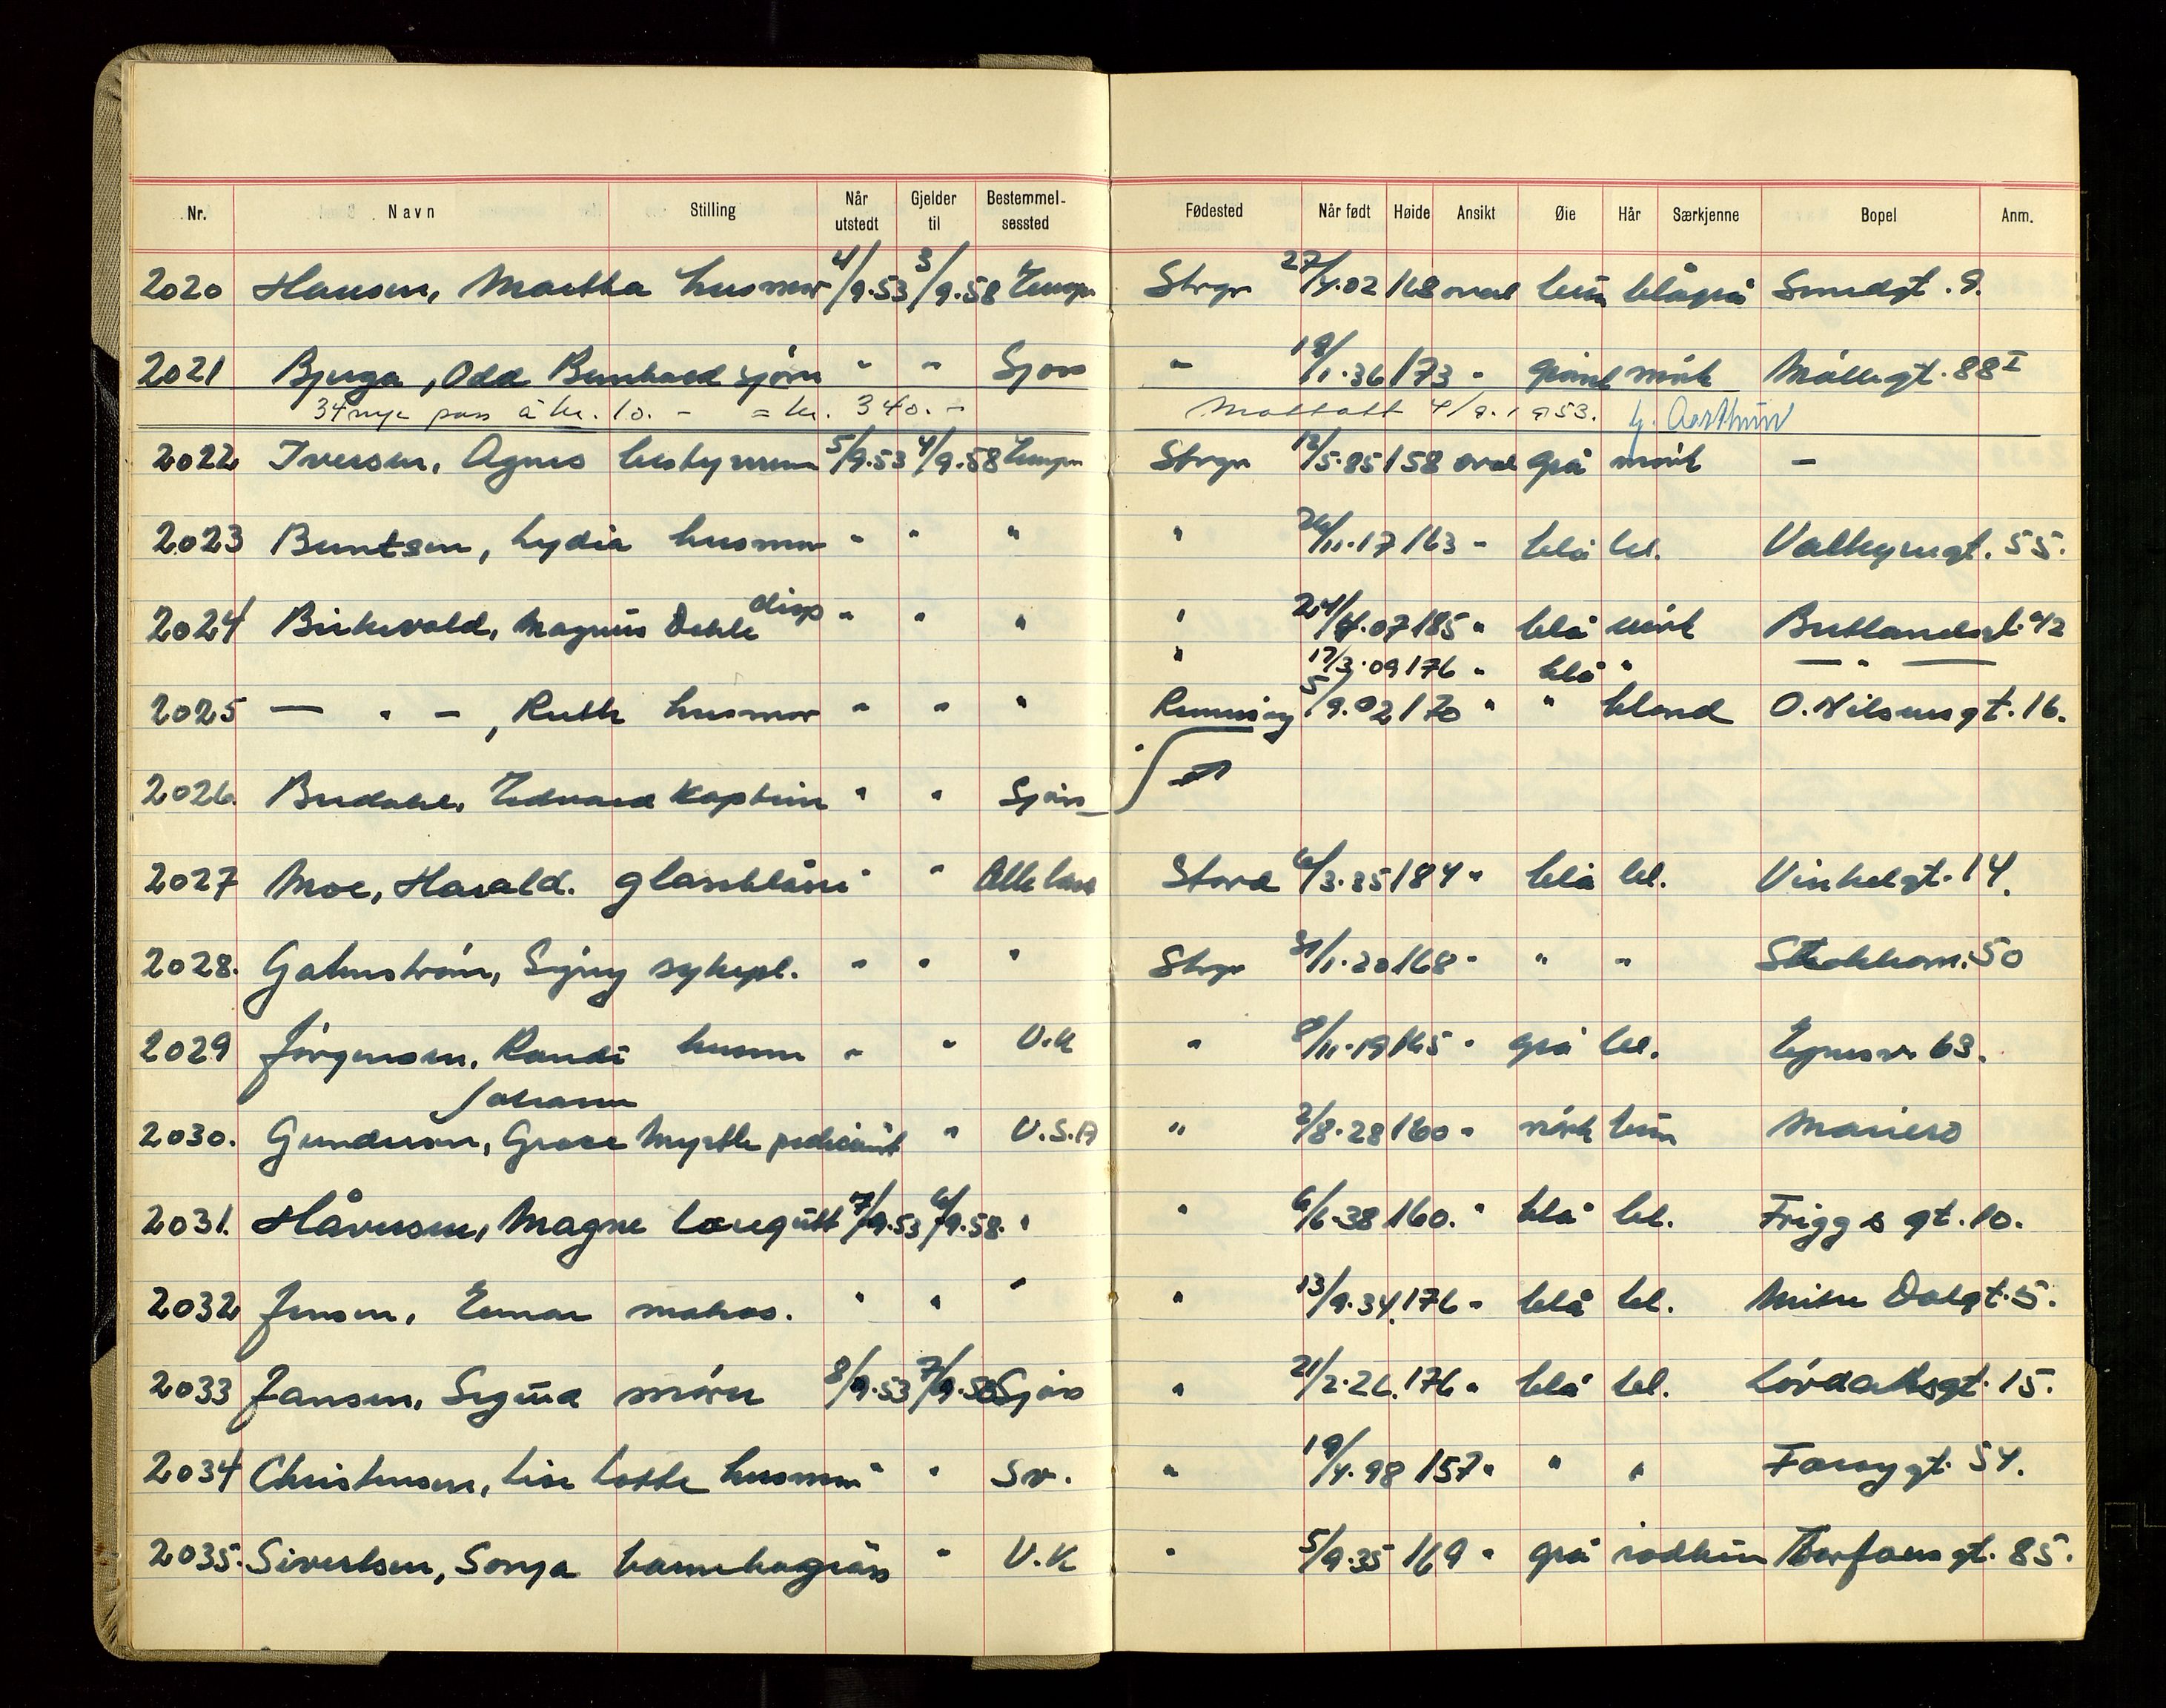 Nr. Navn Stilling Når utstedt Gjelder til Bestemmelsessted Fødested Når født Høide Ansikt Øie Hår Særkjenne Bopel Anm.
2020 Hansen, Martha husmor 4/9.53 3/9.58 Europa Stvgr 27/4.02 168 oval brun blågrå Smedgt. 9.
2021 Bjuga, Odd Bernhard sjøm " " Sjøss " 19/1.36 173 " grønt mørk Møllegt. 88 I
34 nye pass à kr. 10.- = kr. 340.- Mottatt 4/9.1953.
2022 Iversen, Agnes bestyrerinne 5/9.53 4/9.58 Europa Stvgr 12/5.85 158 oval grå mørk –
2023 Berntsen, Lydia husmor " " " " 26/11.17 163 " blå bl. Valkyriegt. 55.
2024 Birkevold, Magnus Dehle disp " " " " 24/4.07 185 " blå mørk Butlandsgt. 42
" 17/3.09 176 " blå " — " —
2025 — " —, Ruth husmor " " " Rennesøy 5/9.02 170 " " blond O. Nilsensgt. 16.
2026 Bredahl, Edvard kaptein " " Sjøss
2027 Moe, Harald. glassblåser " " Alle land Stord 6/3.35 184 " blå bl. Vinkelgt. 14.
2028. Gahnstrøm, Signy sykepl. " " " Stvgr 31/1.20 168 " " " Stokkavn. 50
2029 Jørgensen, Randi husm " " U.K " 8/11.19 165 " grå bl. Egnesv. 63.
Johanne
2030. Gundersen, Grace Myrtle " U.S.A " 2/8.28 160 " mørk brun Mariero
2031. Håversen, Magne læregutt 7/9.53 6/9.58. " " 6/6.38 160. " blå bl. Friggs gt. 10.
2032 Jensen, Einar matros. " " " " 13/9.34. 176 " blå bl. Dalgt. 5.
2033 Jansen, Sigurd 8/9.53 7/9.58 Sjøss " 21/2.26. 176 " blå bl. Lövdahlsgt. 15.
2034 Christensen, Lise Lotte husmor " " Sv. " 19/4.98 157 " " " Farøygt. 54.
2035. Sivertsen, Sonja barnehagelær " U.K " 5/9.35 169 " grå rødbrun Torfæus gt. 85.